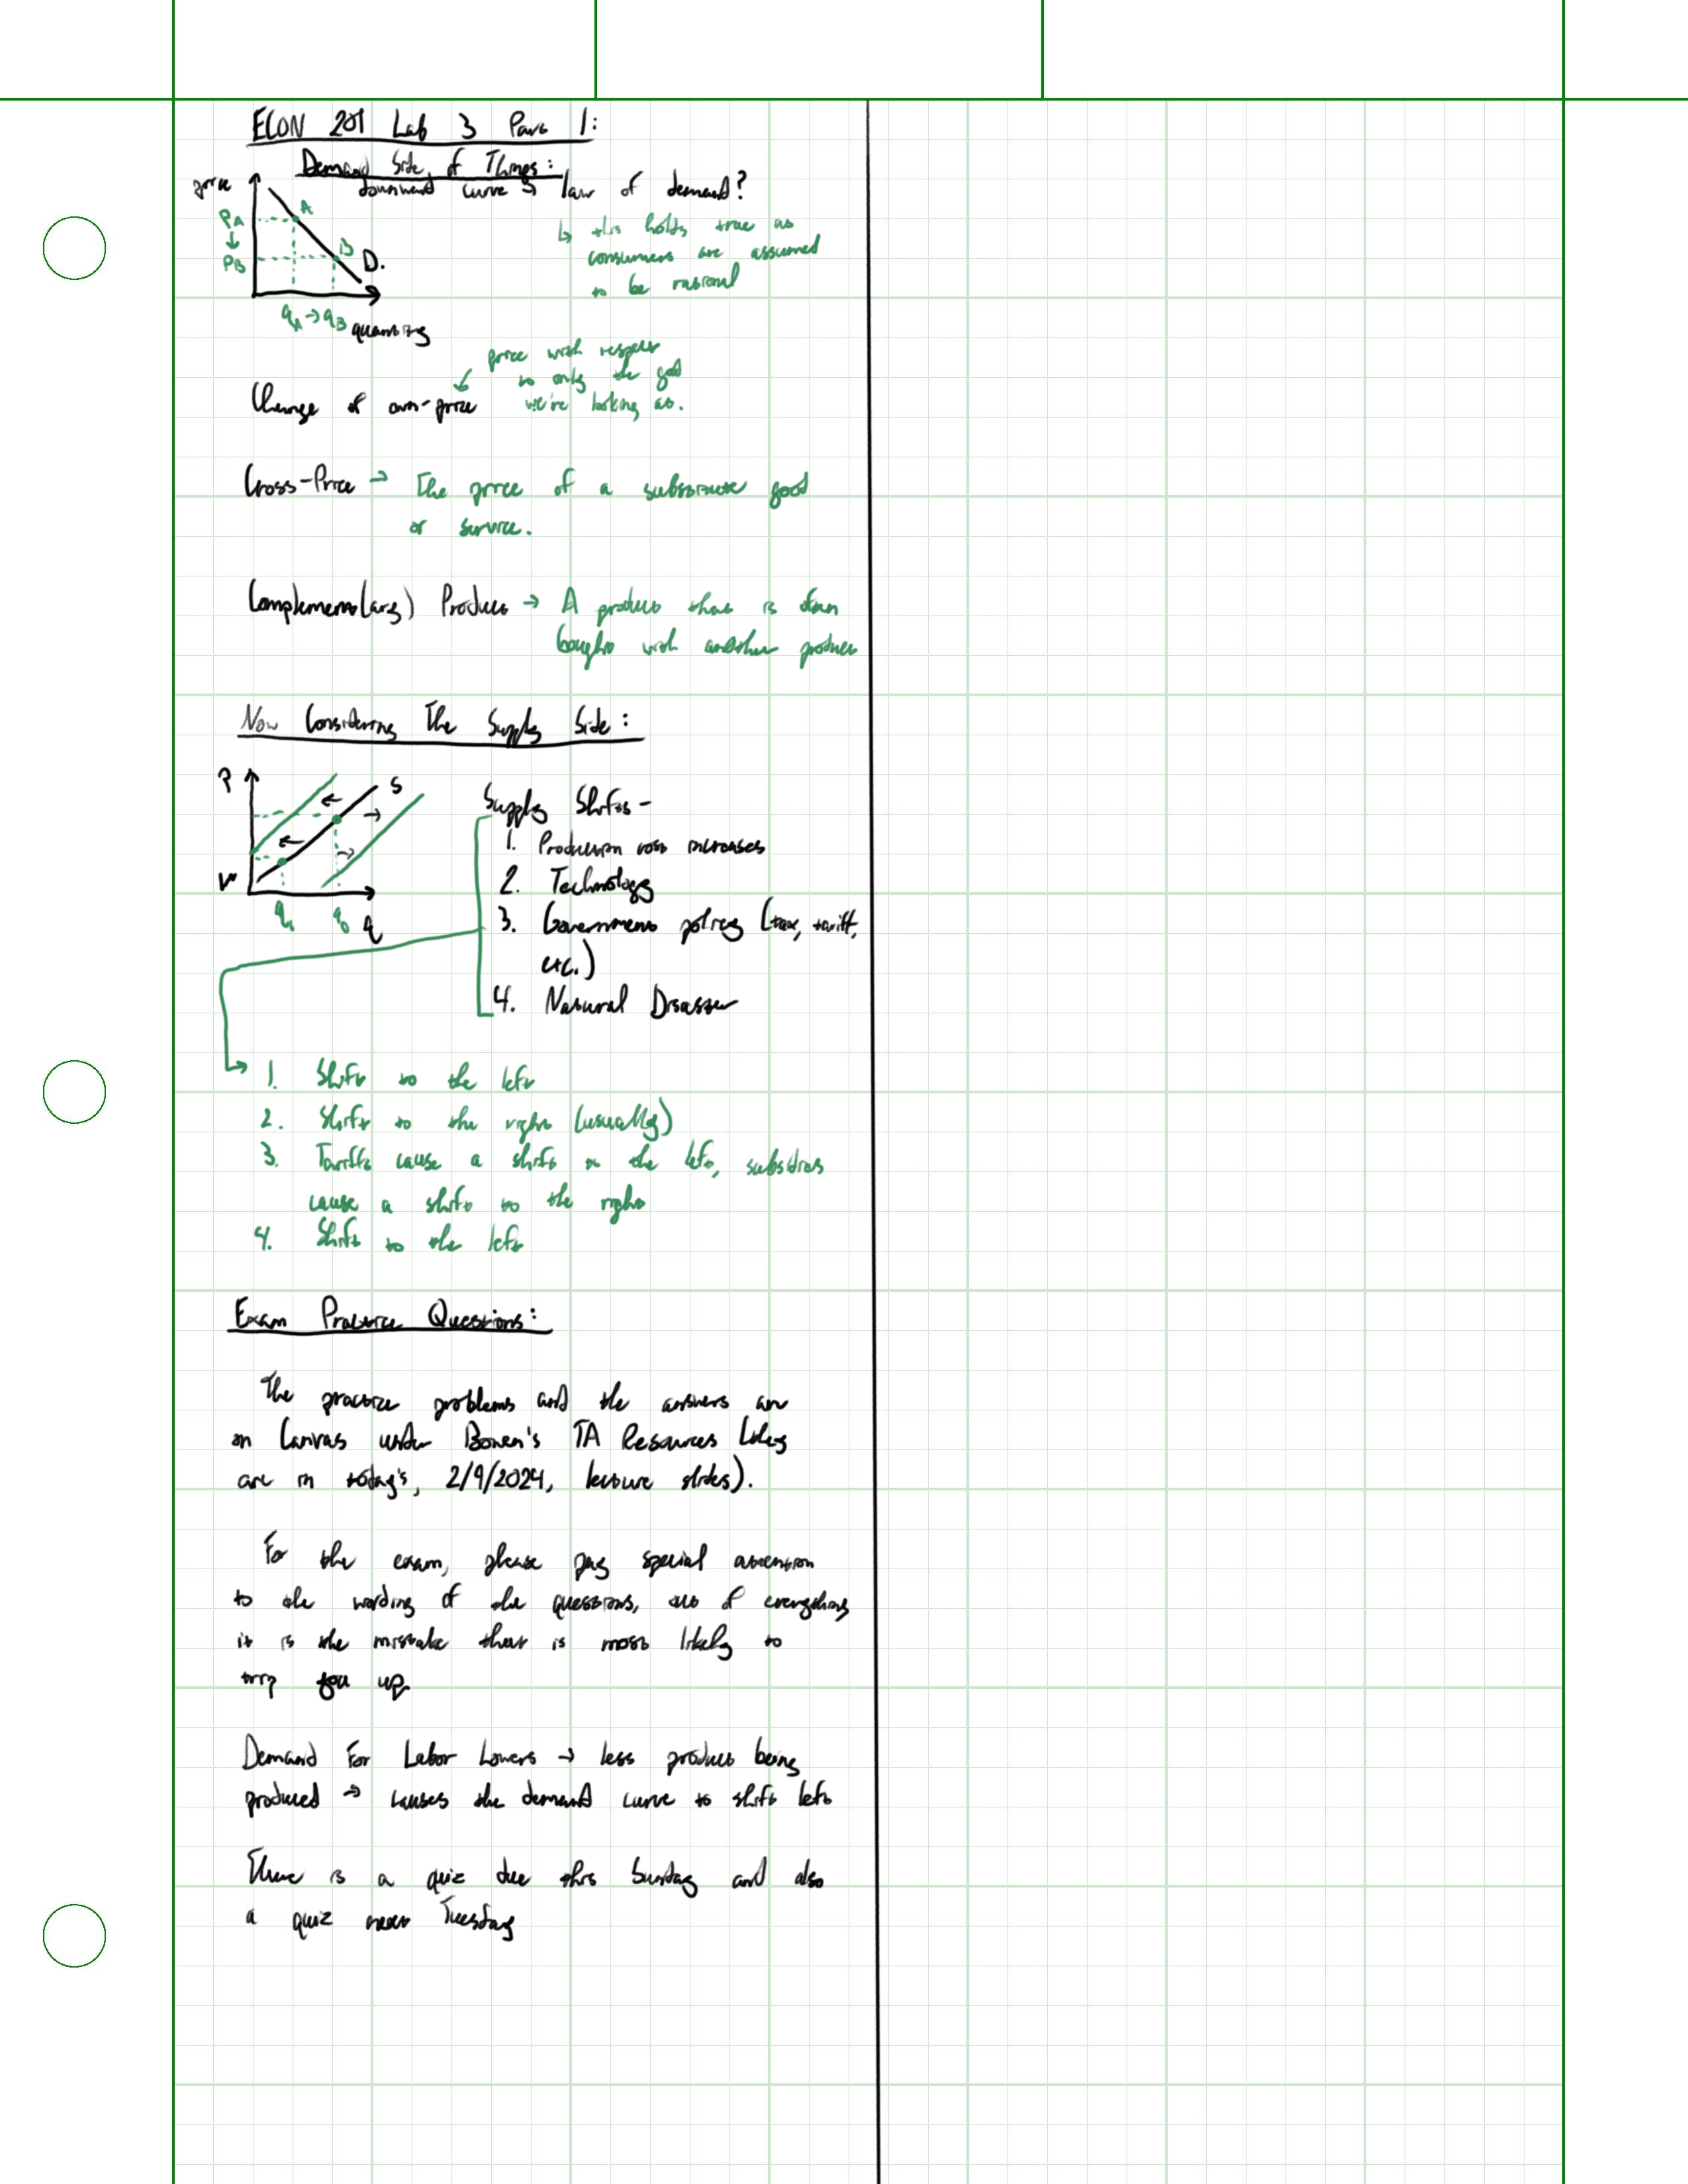 ECON 201 Lab 3 Part 1:
Demand Side of Things:
downward curve → law of demand?
price
PA
↓
PB
A
B
D.
qA → qB
quantity
↳ this holds true as
consumers are assumed
to be rational
price with respect
to only the good
we're looking at.
Change of own-price
Cross-Price → The price of a substitute good
or service.
Complement(ary) Product → A product that is often
bought with another product
Now Considering The Supply Side:
P
S
q1
q0
q
Supply Shifts -
1. Production cost increases
2. Technology
3. Government policy (tax, tariff,
etc.)
4. Natural Disaster
1. Shift to the left
2. Shift to the right (usually)
3. Tariffs cause a shift to the left, subsidies
cause a shift to the right
4. Shift to the left
Exam Practice Questions:
The practice problems and the answers are
on Canvas under Bowen's TA Resources (they
are in today's, 2/9/2024, lecture slides).
For the exam, please pay special attention
to the wording of the questions, out of everything
it is the mistake that is most likely to
trip you up
Demand For Labor Lowers → less product being
produced → causes the demand curve to shift left
There is a quiz due this Sunday and also
a quiz next Tuesday